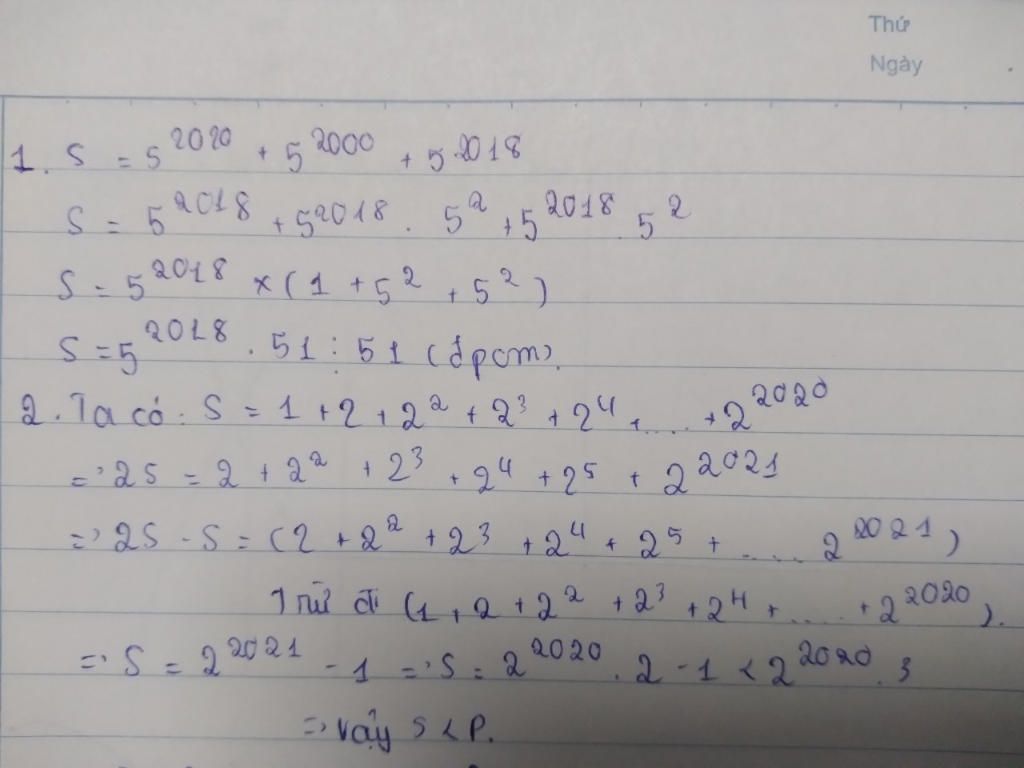 Thứ
Ngày
1. S = 5^2020 + 5^2000 + 5^2018
S = 5^2018 + 5^2018 . 5^2 + 5^2018 . 5^2
S = 5^2018 × ( 1 + 5^2 + 5^2 )
S = 5^2018 . 51 ⋮ 51 (đpcm).
2. Ta có : S = 1 + 2 + 2^2 + 2^3 + 2^4 + .... + 2^2020
=> 2S = 2 + 2^2 + 2^3 + 2^4 + 2^5 + 2^2021
=> 2S - S = (2 + 2^2 + 2^3 + 2^4 + 2^5 + .... 2^2021 )
Trừ đi (1 + 2 + 2^2 + 2^3 + 2^4 + .... + 2^2020 ).
=> S = 2^2021 - 1 => S = 2^2020 . 2 - 1 < 2^2020 . 3
=> Vậy S < P.